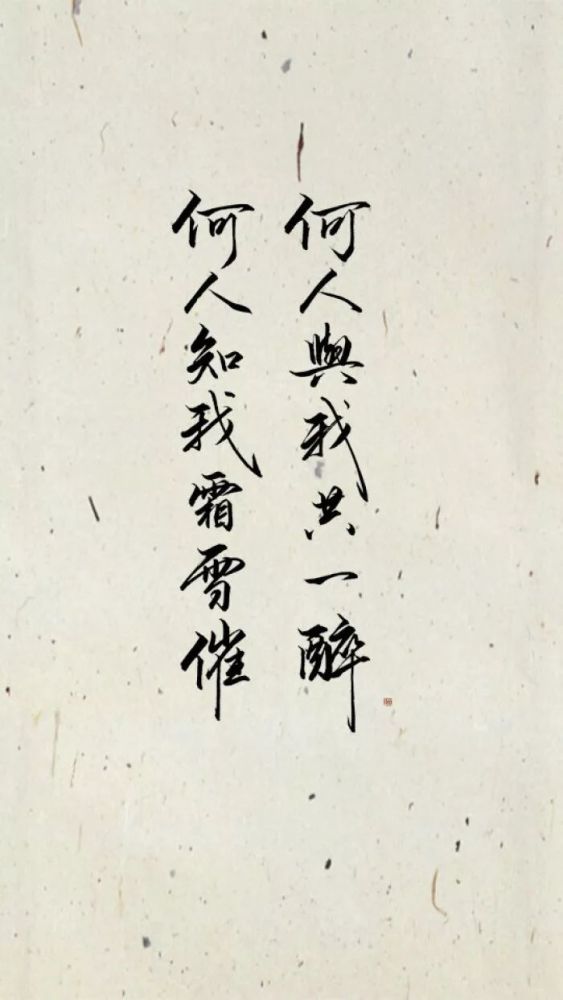 何人與我共一醉
何人知我霜雪催